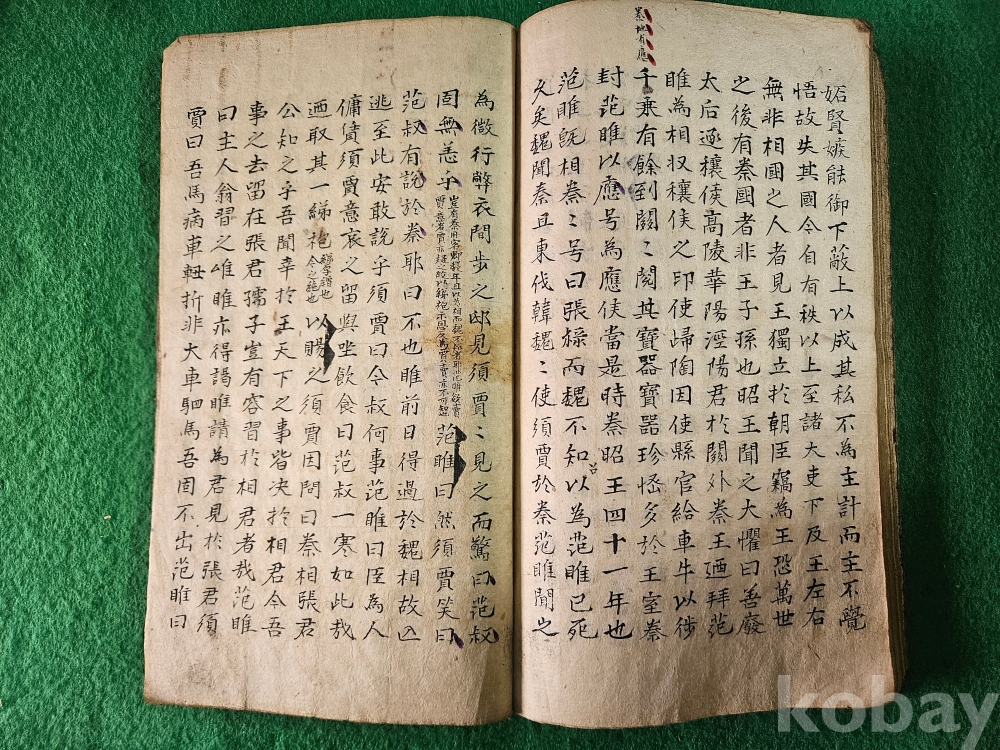 妬賢嫉能御下蔽上以成其私不為主計而主不覺
悟故失其國今自有秩以上至諸大吏下及王左右
無非相國之人者見王獨立於朝臣竊為王恐萬世
之後有秦國者非王子孫也昭王聞之大懼曰善廢
太后逐穰侯高陵華陽涇陽君於關外秦王廼拜范
睢為相収穰侯之印使歸陶因使縣官給車牛以徙
地有應
千乘有餘到關〻閱其寶器寶器珍恠多於王室秦
封范睢以應号為應侯當是時秦昭王四十一年也
范睢旣相秦〻号曰張祿而魏不知以為范睢已死
久矣魏聞秦且東伐韓魏〻使須賈於秦范睢聞之
為微行弊衣間步之邸見須賈〻見之而驚曰范叔
固無恙乎范睢曰然須賈笑曰
范叔有說於秦耶曰不也睢前日得過於魏相故亡
逃至此安敢說乎須賈曰今叔何事范睢曰臣為人
傭賃須賈意哀之留與坐飲食曰范叔一寒如此哉
廼取其一綈袍以賜之須賈因問曰秦相張君
公知之乎吾聞幸於王天下之事皆决於相君今吾
事之去留在張君孺子豈有客習於相君者哉范睢
曰主人翁習之唯睢亦得謁睢請為君見於張君須
賈曰吾馬病車軸折非大車駟馬吾固不出范睢曰
kobay